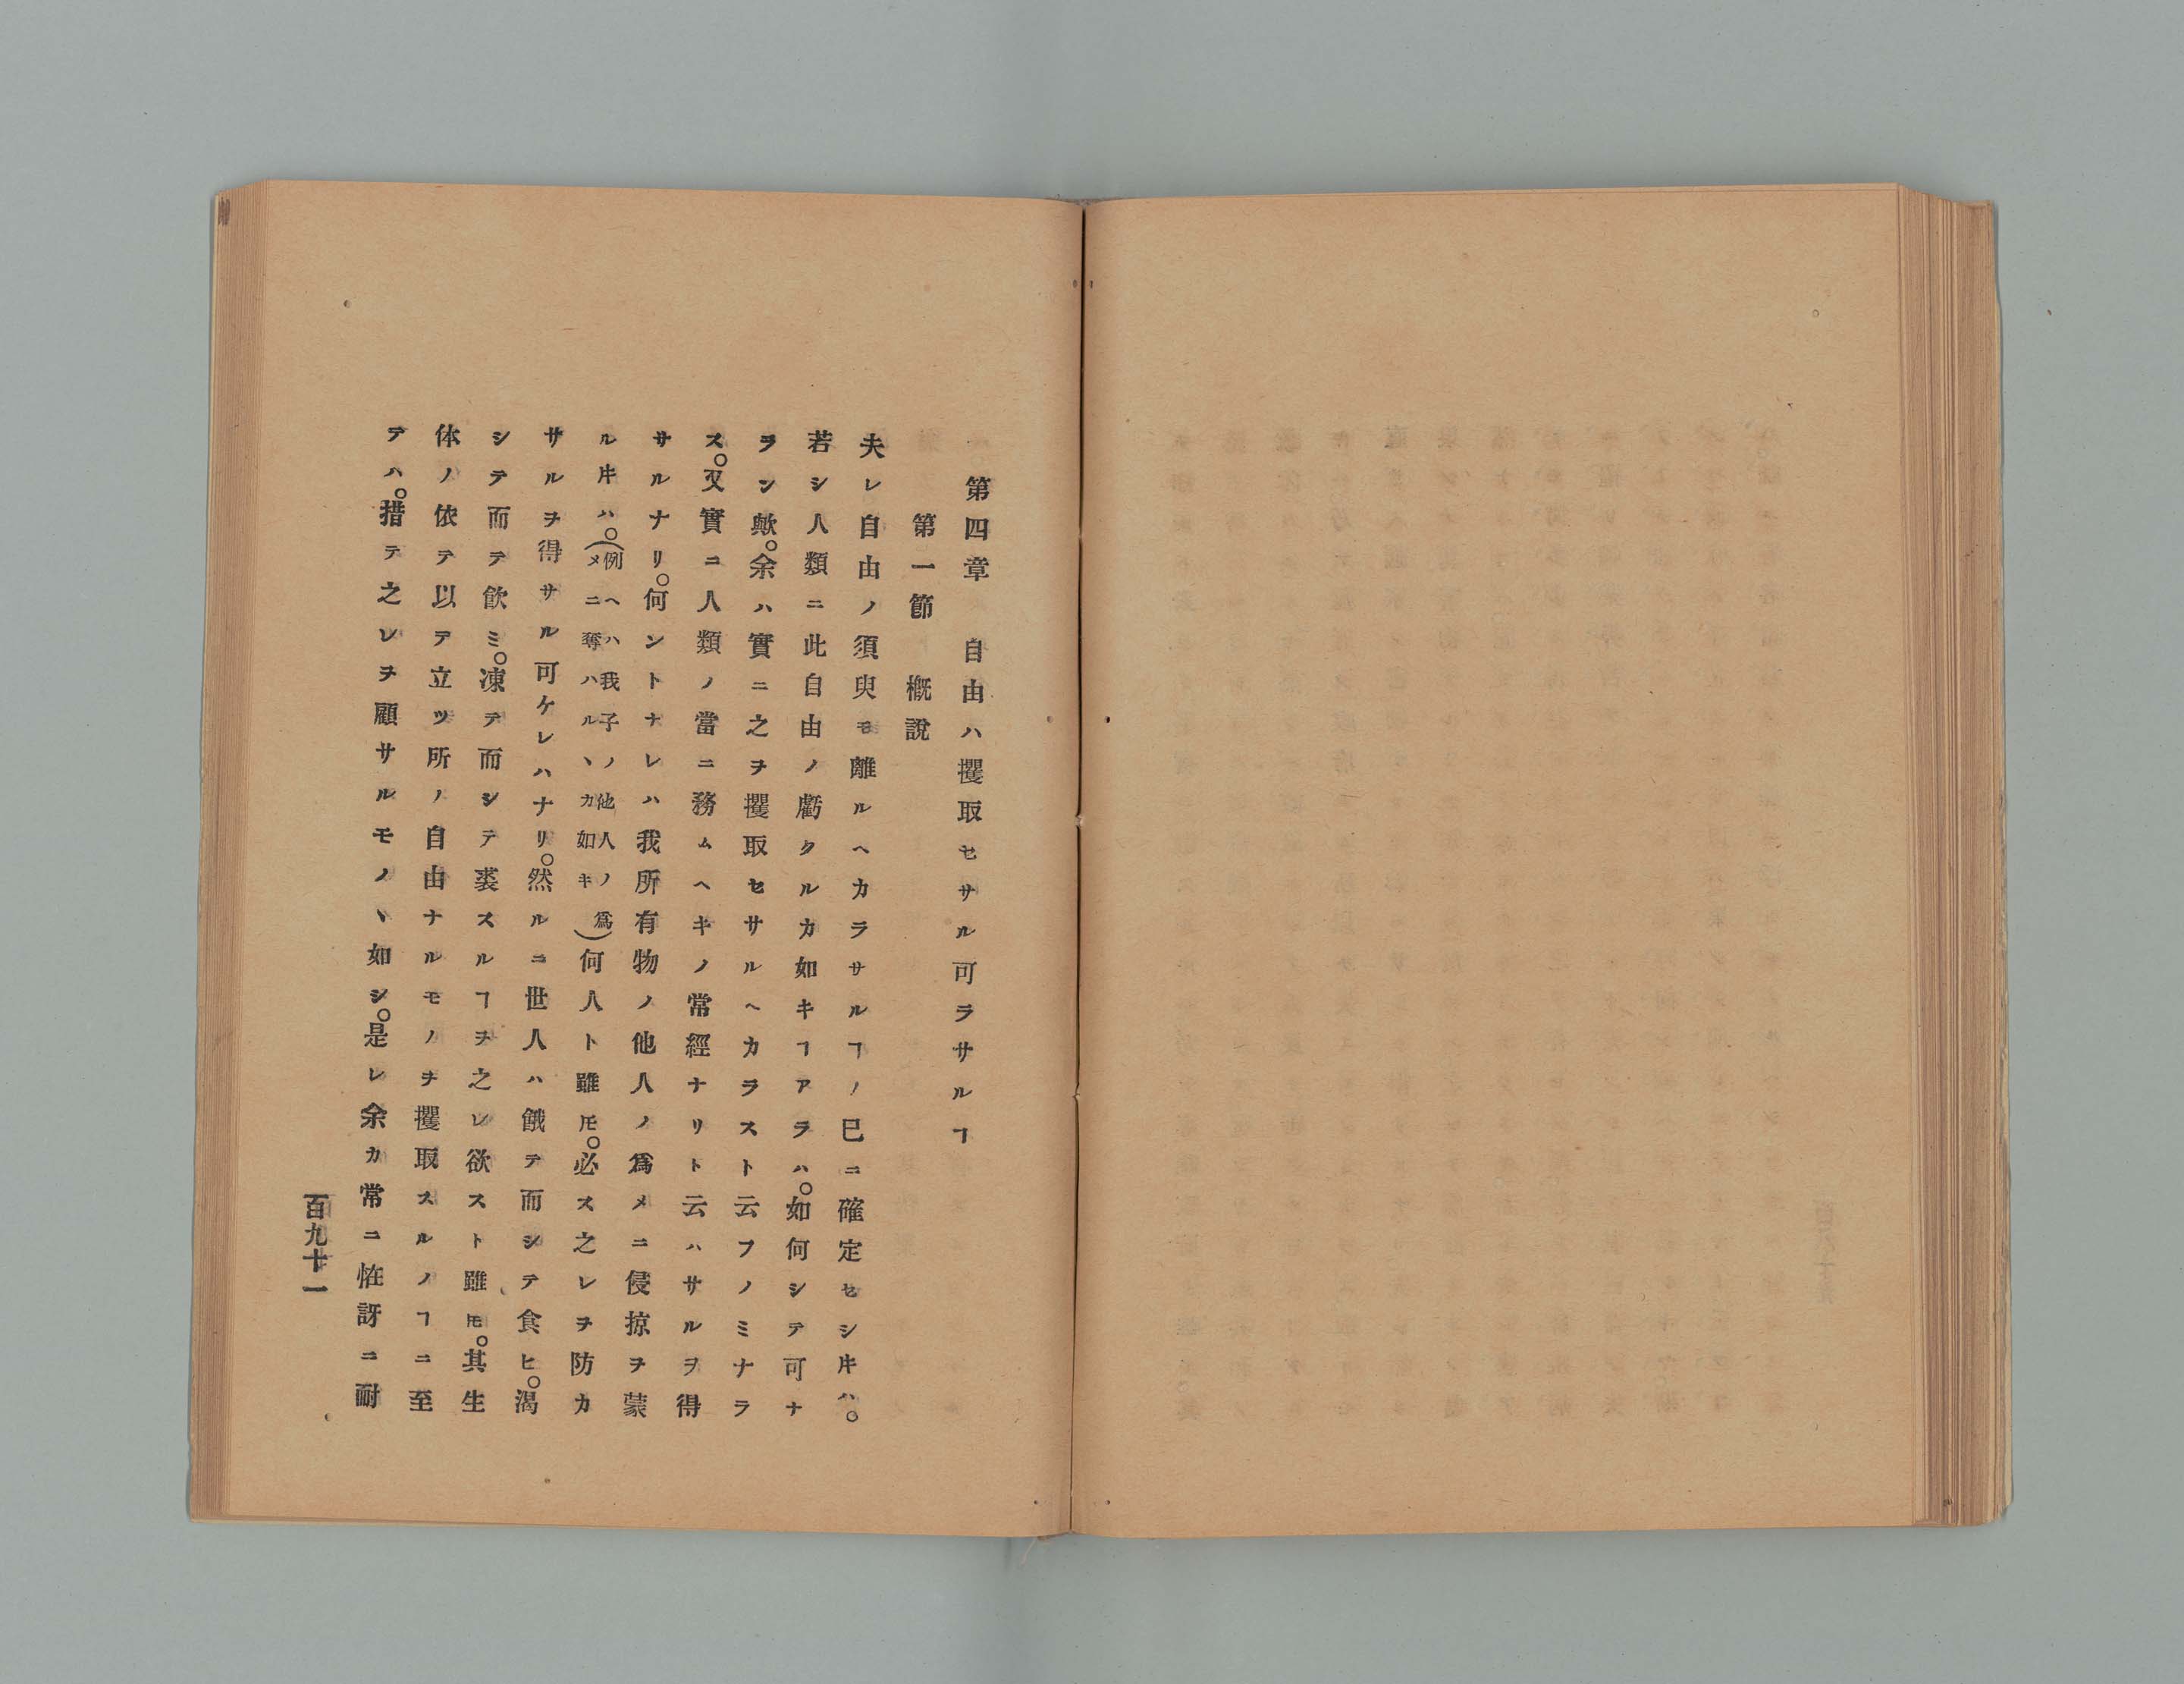 第四章　自由ハ攫取セサル可ラサルヿ
第一節　概說
夫レ自由ノ須臾モ離ルヘカラサルヿノ已ニ確定セシ𪜈ハ。
若シ人類ニ此自由ノ虧クルカ如キヿアラハ。如何シテ可ナ
ラン歟。余ハ實ニ之ヲ攫取セサルヘカラスト云フノミナラ
ス。又實ニ人類ノ當ニ務ムヘキノ常經ナリト云ハサルヲ得
サルナリ。何ントナレハ我所有物ノ他人ノ爲メニ侵掠ヲ蒙
ル𪜈ハ。(例ヘハ我子ノ他人ノ爲メニ奪ハルヽカ如キ)何人ト雖𪜈。必ス之レヲ防カ
サルヲ得サル可ケレハナリ。然ルニ世人ハ餓テ而シテ食ヒ。渴
シテ而テ飮ミ。凍テ而シテ裘スルヿヲ之レ欲スト雖𪜈。其生
体ノ依テ以テ立ツ所ノ自由ナルモノヲ攫取スルノヿニ至
テハ。措テ之レヲ顧サルモノヽ如シ。是レ余カ常ニ恠訝ニ耐
百九十一